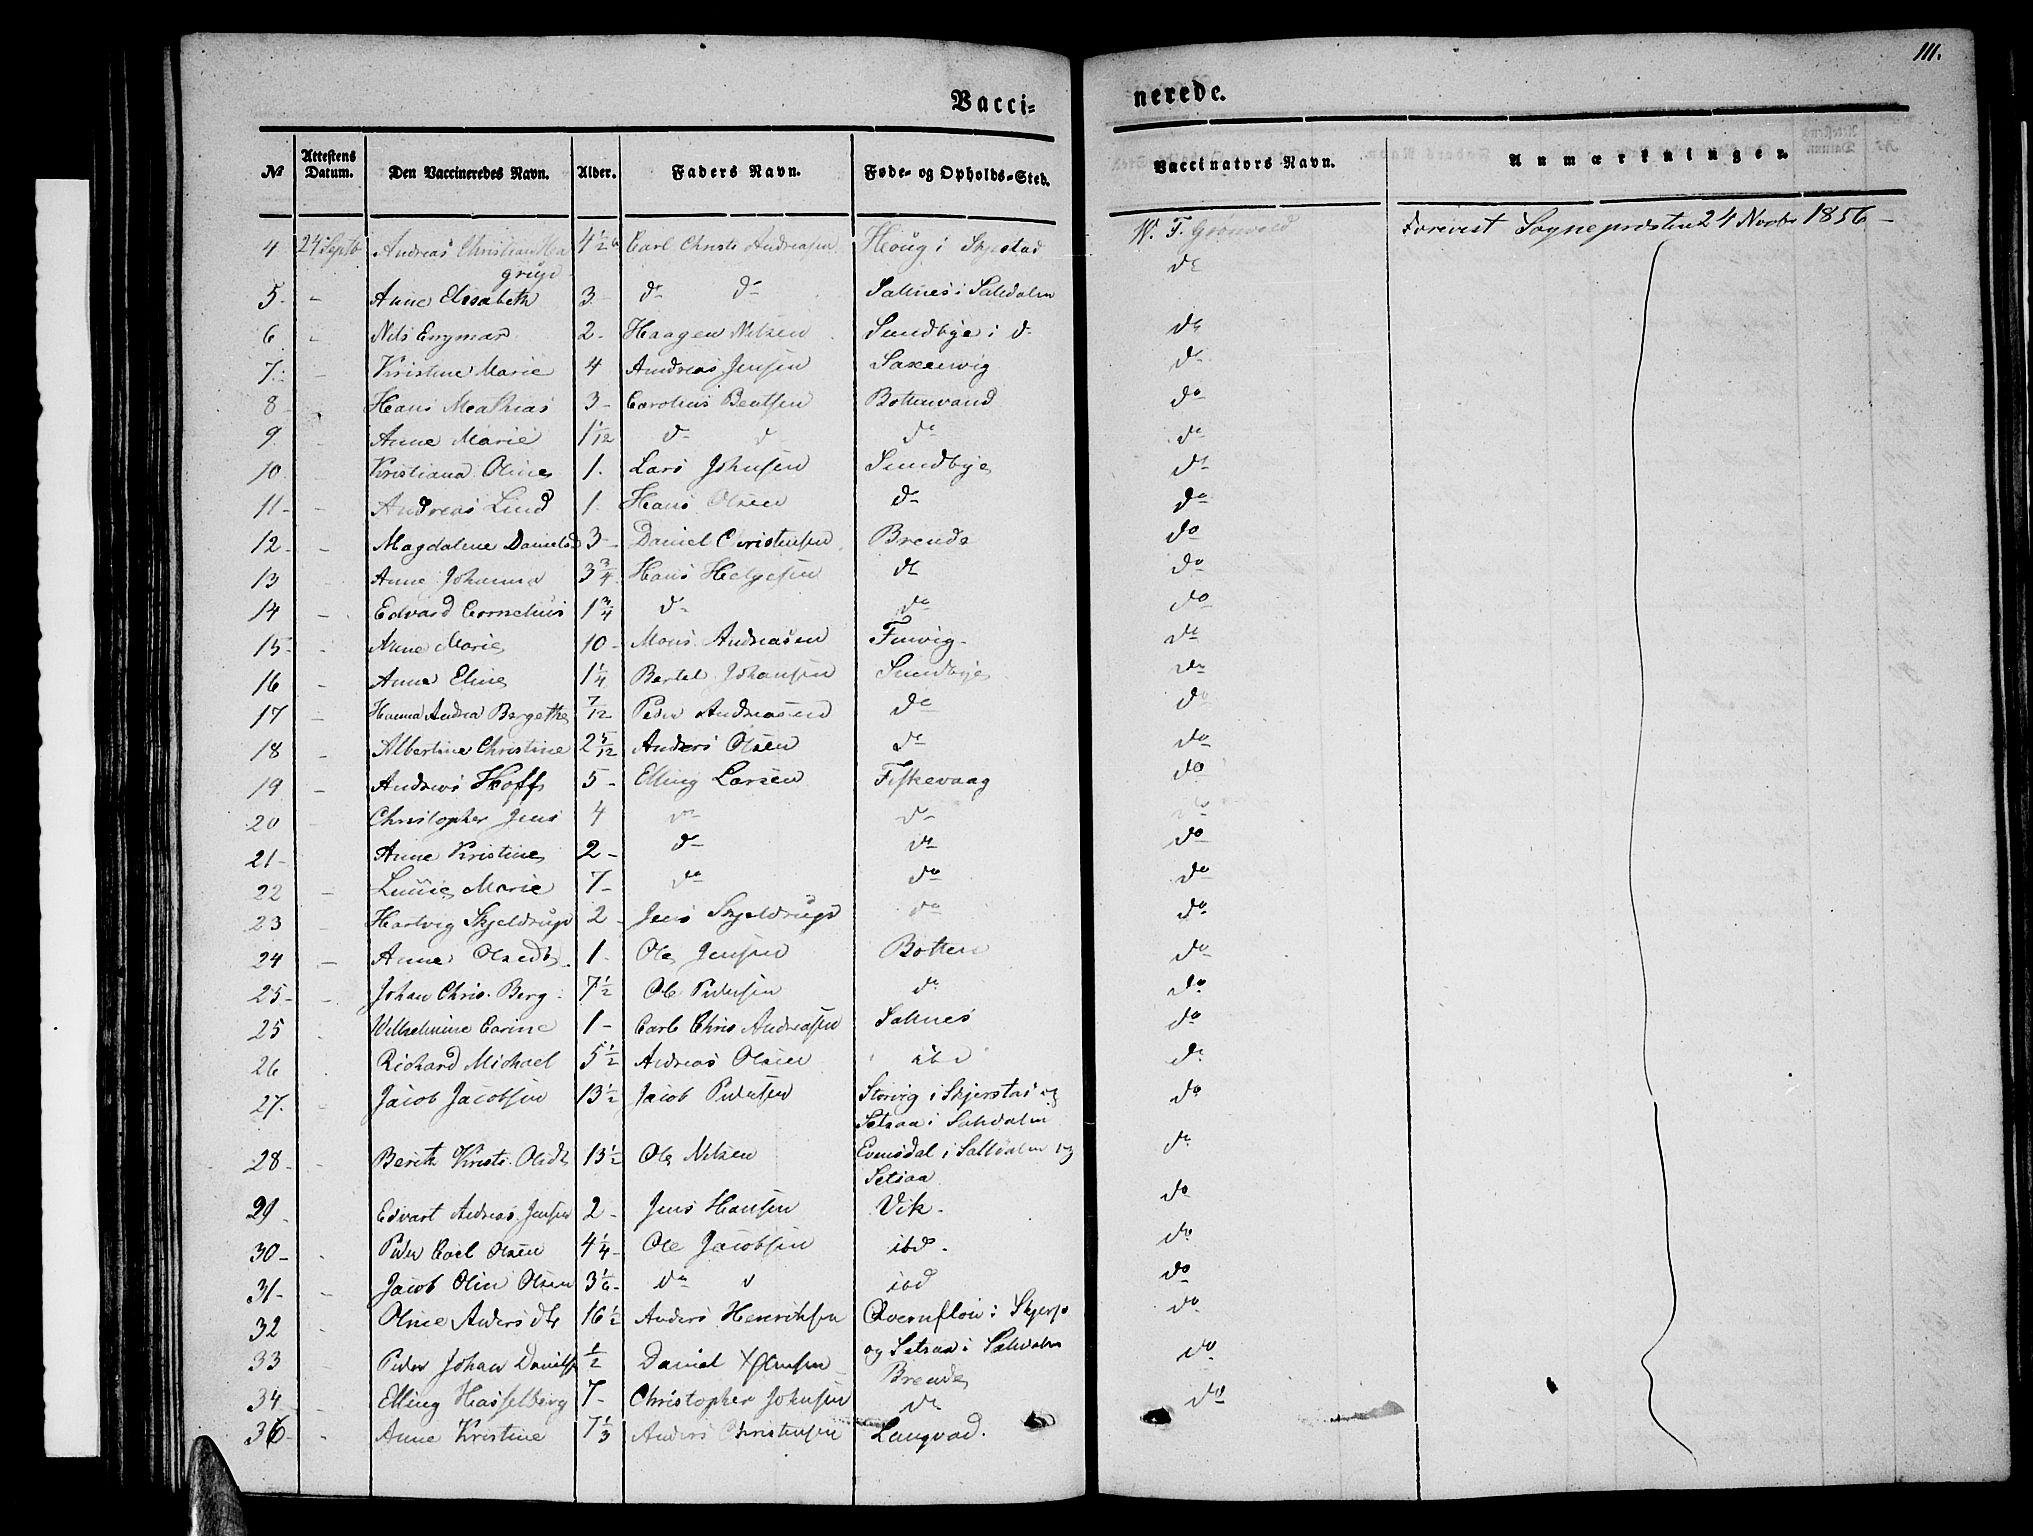 111.
Vacci-
nerede.
№ Attestens Datum. Den Vaccineredes Navn. Alder. Faders Navn. Føde- og Opholds-Sted. Vaccinators Navn. Anmærkninger.
4 24 Septb Andreas Christian 4 1/2 Carl Christ. Andreasen Houg i Skjestad W. F. Grønvold Forevist Sognepræsten 24 Novbr 1856 -
5. - Anne Elisabeth 3 - do do Saltnes i Saltdalen do
6. - Nils Engmar 2 - Haagen Nilsen Sundbye i do do
7. - Kristine Marie 4 Andreas Jensen Saxenvig do
8 - Hans Mathias 3 - Carolius Bentsen Bottenvand do
9. - Anne Marie 1 1/12 do do do do
10. Kristiana Oline 1. Lars Johnsen Sundbye do
11 - - Andreas Lund 1. Hans Olsen do do
12 - - Magdalene Daniels 3 - Daniel Christensen Brende do
13 - Anne Johanna 3 3/4 Hans Helgesen do do
14 - Edvard Cornelius 1 3/4 do do do
15 - - Anne Marie 10 - Mons Andreasen Fuivig - do
16 - Anne Eline 1 1/4 Bertel Johansen Sundbye do
17 - Hanna Andrea Bergethe 7/12 Peder Andreasen do do
18 - Albertine Christine 2 5/12 Anders Olsen do do
19 - Andreas Hoff 5 - Elling Larsen Fiskevaag do
20 - Christopher Jens 4 do do do
21 - Anne Kristine 2 - do do do
22 - Lucie Marie 7 - do do do
23 - Hartvig Skjeldrup 2 - Jens Skjeldrup do do
24 - Anne Olsdt. 1 - Ole Jensen Botten do
25 - - Johan Chris. Berg 7 1/2 Ole Pedersen do do
25 - Wilhelmine Carine 1 - Carl Chris Andreasen Saltnes do
26 Richard Michael 5 1/2 Andreas Olsen ibd do
27. - Jacob Jacobsen 13 1/2 Jacob Pedersen Storvig i Skjerstad og do
Setsaa i Saltdalen
28 - - Berith Krist. Olsdt 13 1/2 Ole Nilsen Evensdal i Saltdalen og do
Setsaa
29 - - Edvart Andreas Jensen 2 - Jens Hansen Vik. do
30 - - Peder Carl Olsen 4 1/4 - Ole Jacobsen ibd. do
31 - - Jacob Olin Olsen 3 1/6 - do ibd do
32 - Oline Anders dtr 16 1/2 Anders Henriksen Qvernfloi i Skjerst do
og Setsaa i Saltdalen
33 - Peder Johan Danielsen 1/2 Daniel Brende do
34 - Elling Hasselberg 7 - Christopher Johnsen do do
36 - - Anne Kristine 7 1/3 Anders Christensen Langvad.